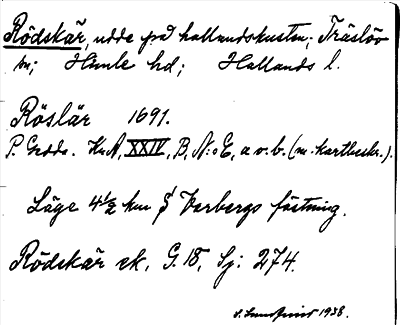 Rödskär, udde på hallandskusten; Träslöv
sn; Himle hd; Hallands l.
Röslär 1691.
P. Gedda. KrA, XXIV, B, N:o E, a o. b. (m. kartbeskr.).
Läge 4½ km Varbergs fästning.
Rödskär ek. G. 18, Sj: 274.
1938.